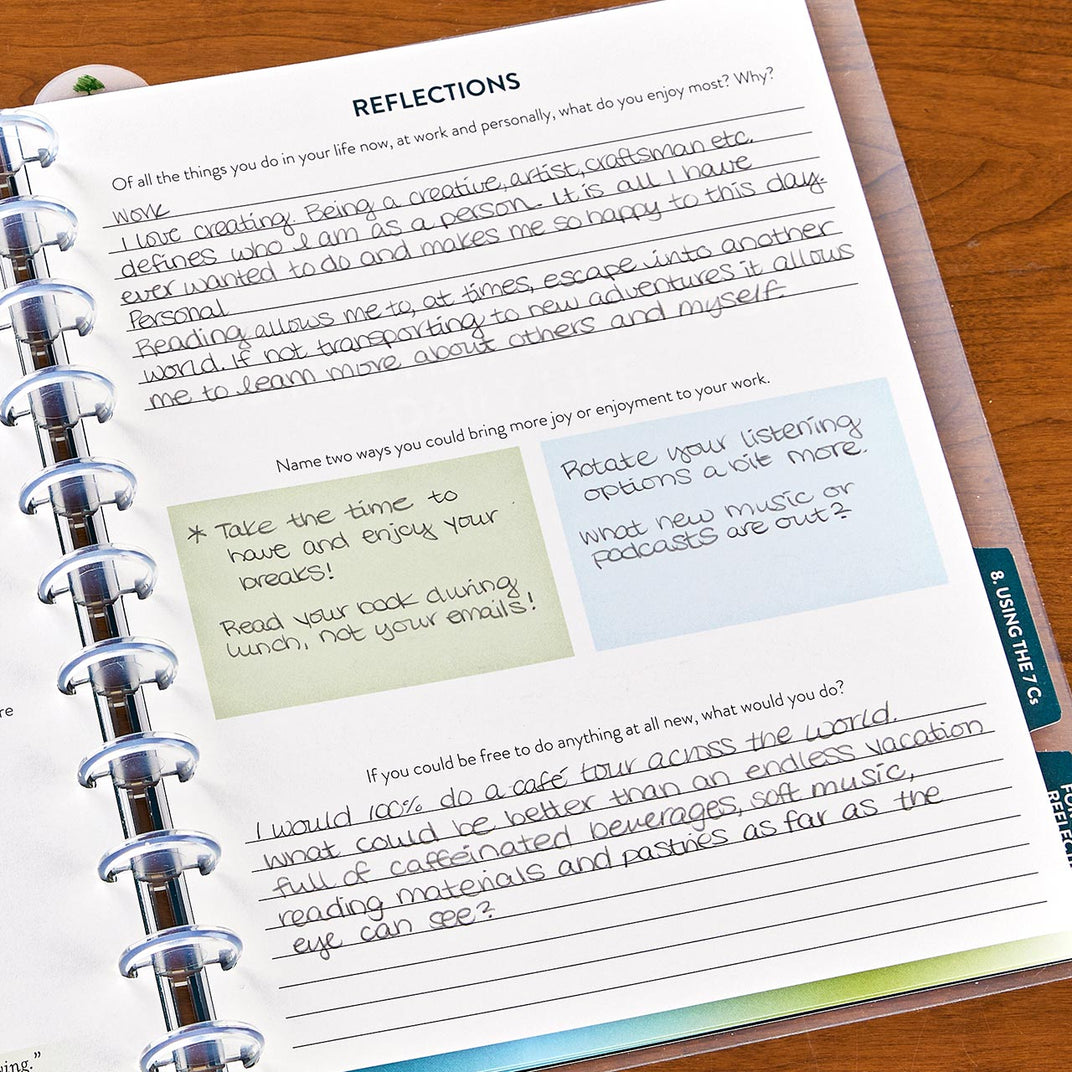 REFLECTIONS
Of all the things you do in your life now, at work and personally, what do you enjoy most? Why?
work
I love creating. Being a creative, artist, craftsman etc.
defines who I am as a person. It is all I have
ever wanted to do and makes me so happy to this day.
Personal
Reading allows me to, at times, escape into another
world. If not transporting to new adventures it allows
me to learn more about others and myself.
Name two ways you could bring more joy or enjoyment to your work.
* Take the time to
have and enjoy your
breaks!
Read your book during
lunch, not your emails!
Rotate your listening
options a bit more.
What new music or
podcasts are out?
If you could be free to do anything at all new, what would you do?
I would 100% do a café tour across the world.
What could be better than an endless vacation
full of caffeinated beverages, soft music,
reading materials and pastries as far as the
eye can see?
8. USING THE 7 Cs
re
ing."